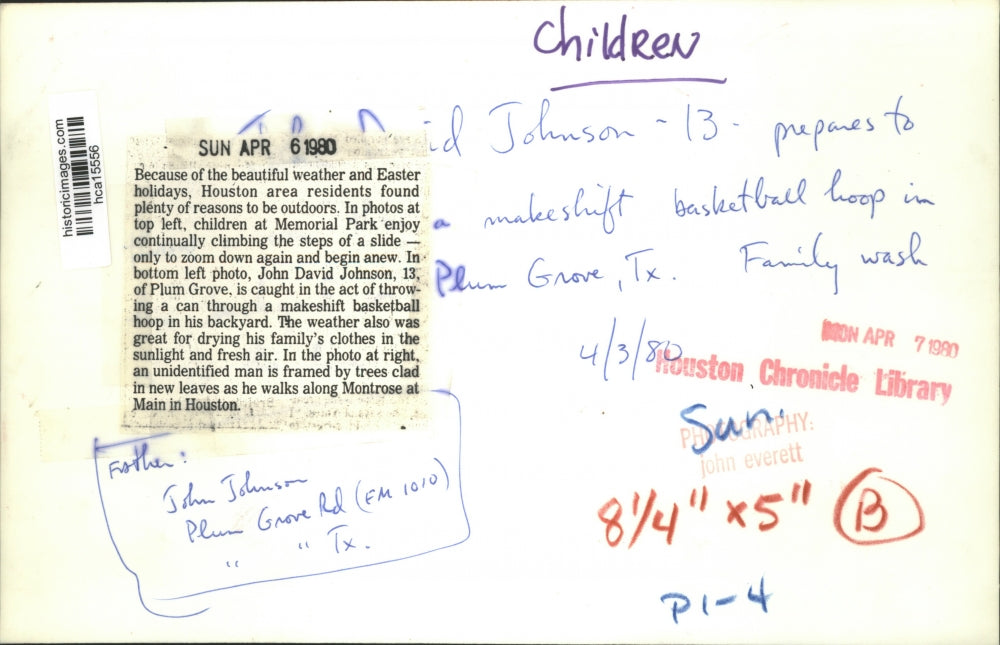 Children
historicimages.com
hca15556
id Johnson - 13 - prepares to
a makeshift basketball hoop in
Plum Grove, Tx. Family wash
4/3/80
SUN APR 6 1980
Because of the beautiful weather and Easter
holidays, Houston area residents found
plenty of reasons to be outdoors. In photos at
top left, children at Memorial Park enjoy
continually climbing the steps of a slide —
only to zoom down again and begin anew. In
bottom left photo, John David Johnson, 13,
of Plum Grove, is caught in the act of throw-
ing a can through a makeshift basketball
hoop in his backyard. The weather also was
great for drying his family's clothes in the
sunlight and fresh air. In the photo at right,
an unidentified man is framed by trees clad
in new leaves as he walks along Montrose at
Main in Houston.
MON APR 7 1980
Houston Chronicle Library
Sun.
PHOTOGRAPHY:
john everett
Father:
John Johnson
Plum Grove Rd (FM 1010)
" " Tx.
8 1/4" x 5" B
P1-4